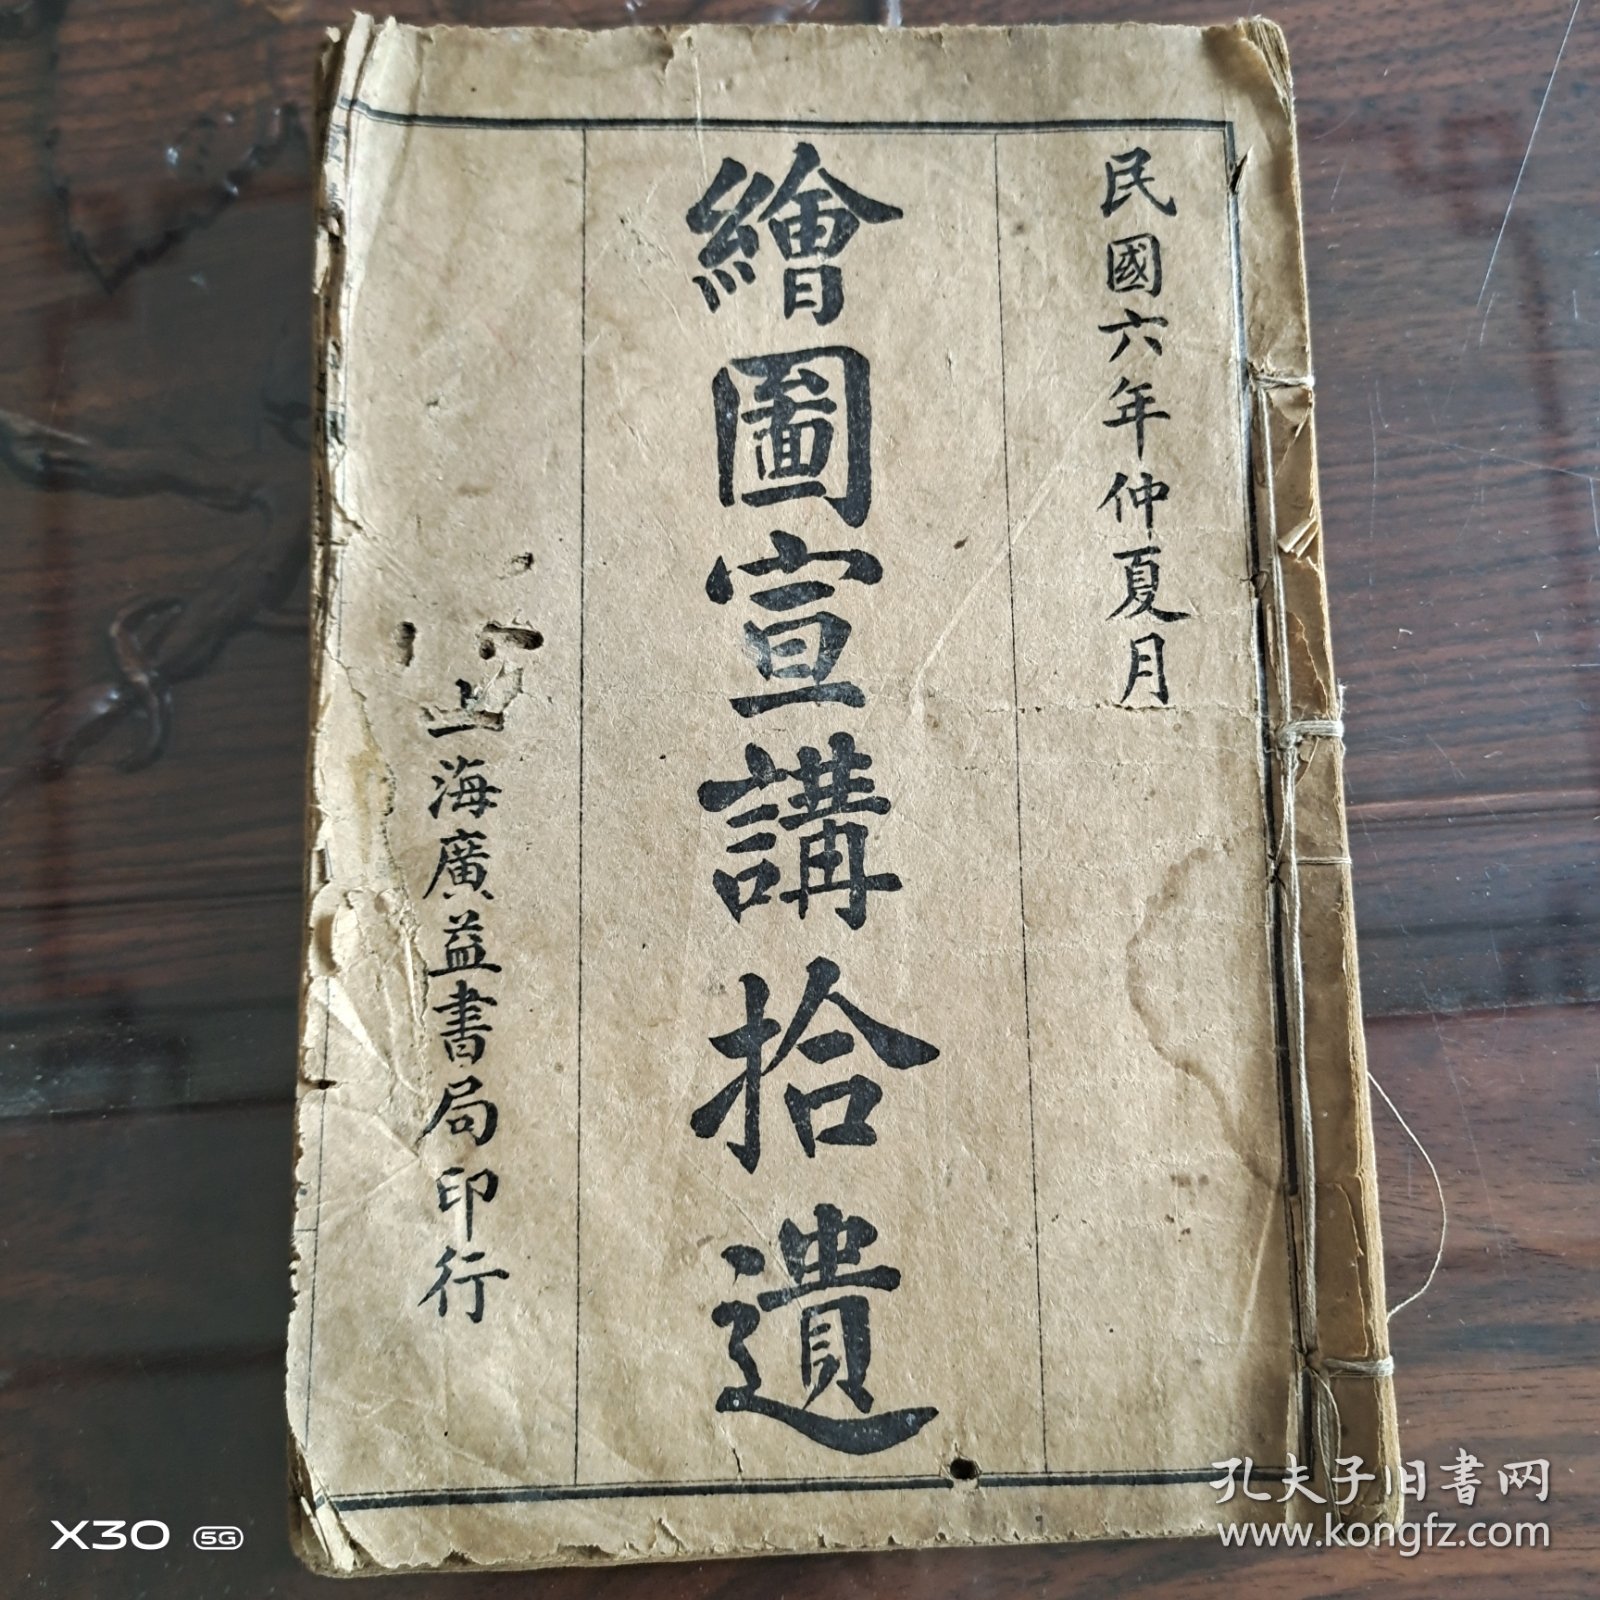 民國六年仲夏月
繪圖宣講拾遺
上海廣益書局印行
孔夫子旧书网
www.kongfz.com
X30 5G